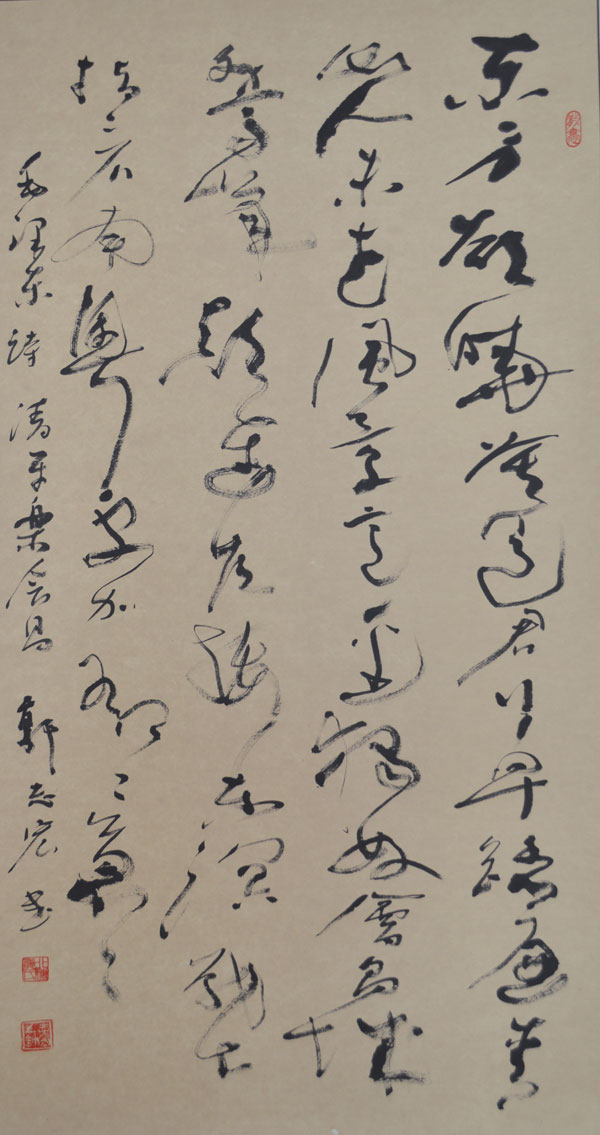 東方欲曉莫道君行早踏遍青
山人未老風景這邊獨好會昌城
外高峰顛連直接東溟戰士
指看南粵更加郁々葱々
毛澤東詩 清平樂會昌 軒志宏書